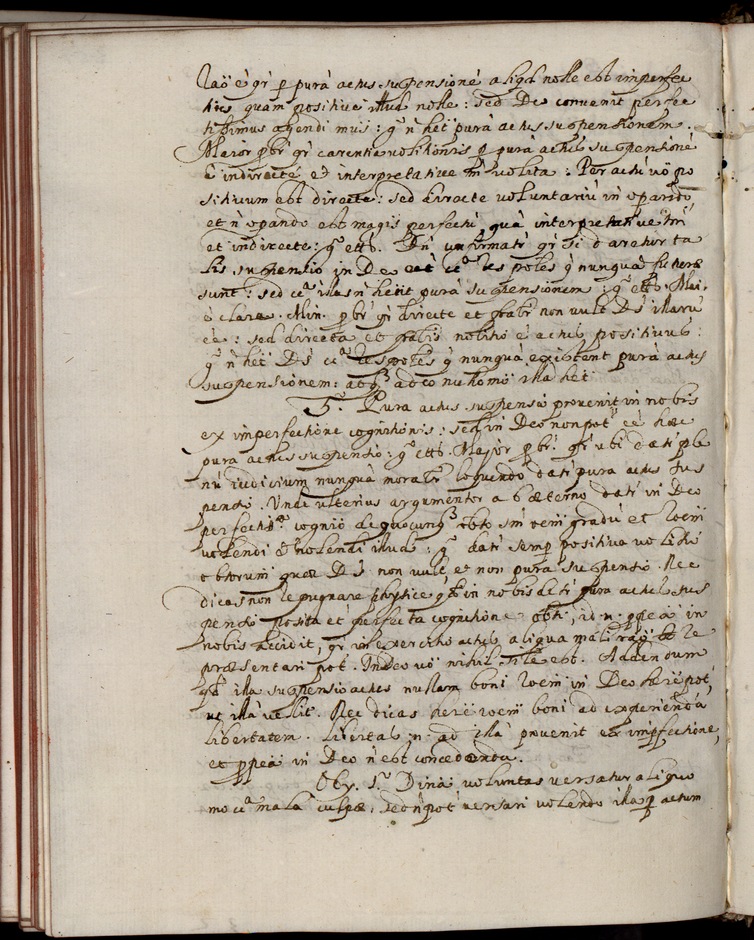 rãõ è gr̃ p purã actus suspensionẽ aligd nolle est imperfec
tius quam positive illud nolle : sed Deo convenit perfec
tissimus agendi mũs : g̃ ñ hẽt purã actus suspensionem.
Maior pbr̃ gr̃ carentia volitionis p purã actus suspensionẽ
è indirecte et interpretative tm̃ volita : Per actũ vö po
sitivum est directe : sed directe voluntariũ in operãdo
et ñ opando est magis perfectũ quã interpretative tm̃
et indirecte : g̃ etts. Dñ confirmatr̃ gr̃ si daretur ta
lis suspensio in Deo cã res poles q̃ nunquã futuræ
sunt : sed cã illas ñ hẽt purã suspensionem : g̃ etts. Mai.
è clara. Min. pbr̃ gr̃ directe et non vult Ds̃ illarũ
ẽe : sed directa et nolitio è actus positivus :
g̃ ñ hẽt Ds̃ cã res poles q̃ nunquã existent purã actus
suspensionem : illã hẽt
5.º Pura actus suspensio provenit in nobis
ex imperfectione cognitionis : sed in Deo non pot ẽe hæc
pura actus suspensio : g̃ etts. Major pbr̃. gr̃ ubi dati ple
nũ iudicium nunquã moralr̃ loquendo dati pura actus sus
pensio. Unde ulterius argumentor ab æterno dati in Deo
perfectis.ª cognitiõ de quocunq̃ obto sm̃ oem̃ gradũ et roem̃
volendi et nolendi illud : g̃ dati semp positiva volitio
obtorum quæ Ds̃ non vult et non pura suspensio. Nec
dicas non repugnare physice qd in nobis deti pura actus sus
pensio posita et perfecta cognitione obti, id .n. ex eã in
nobis accidit, gr̃ in exercitio actus aliqua mali rãõ re
præsentari pot. In Deo vö nihil tle est. Addendum
qd illa suspensio actus nullam boni roem̃ in Deo hẽre pot,
ut illã velit. Nec dicas hẽre roem̃ boni ad experiendã
libertatem. Libertas .n. ad illã provenit ex imperfectione,
et p pea in Deo ñ est concedenda.
Oby. 1.º Divina voluntas versatur aliquo
mo cã mala culpæ, Deo ñ pot versari volendo illa p actum